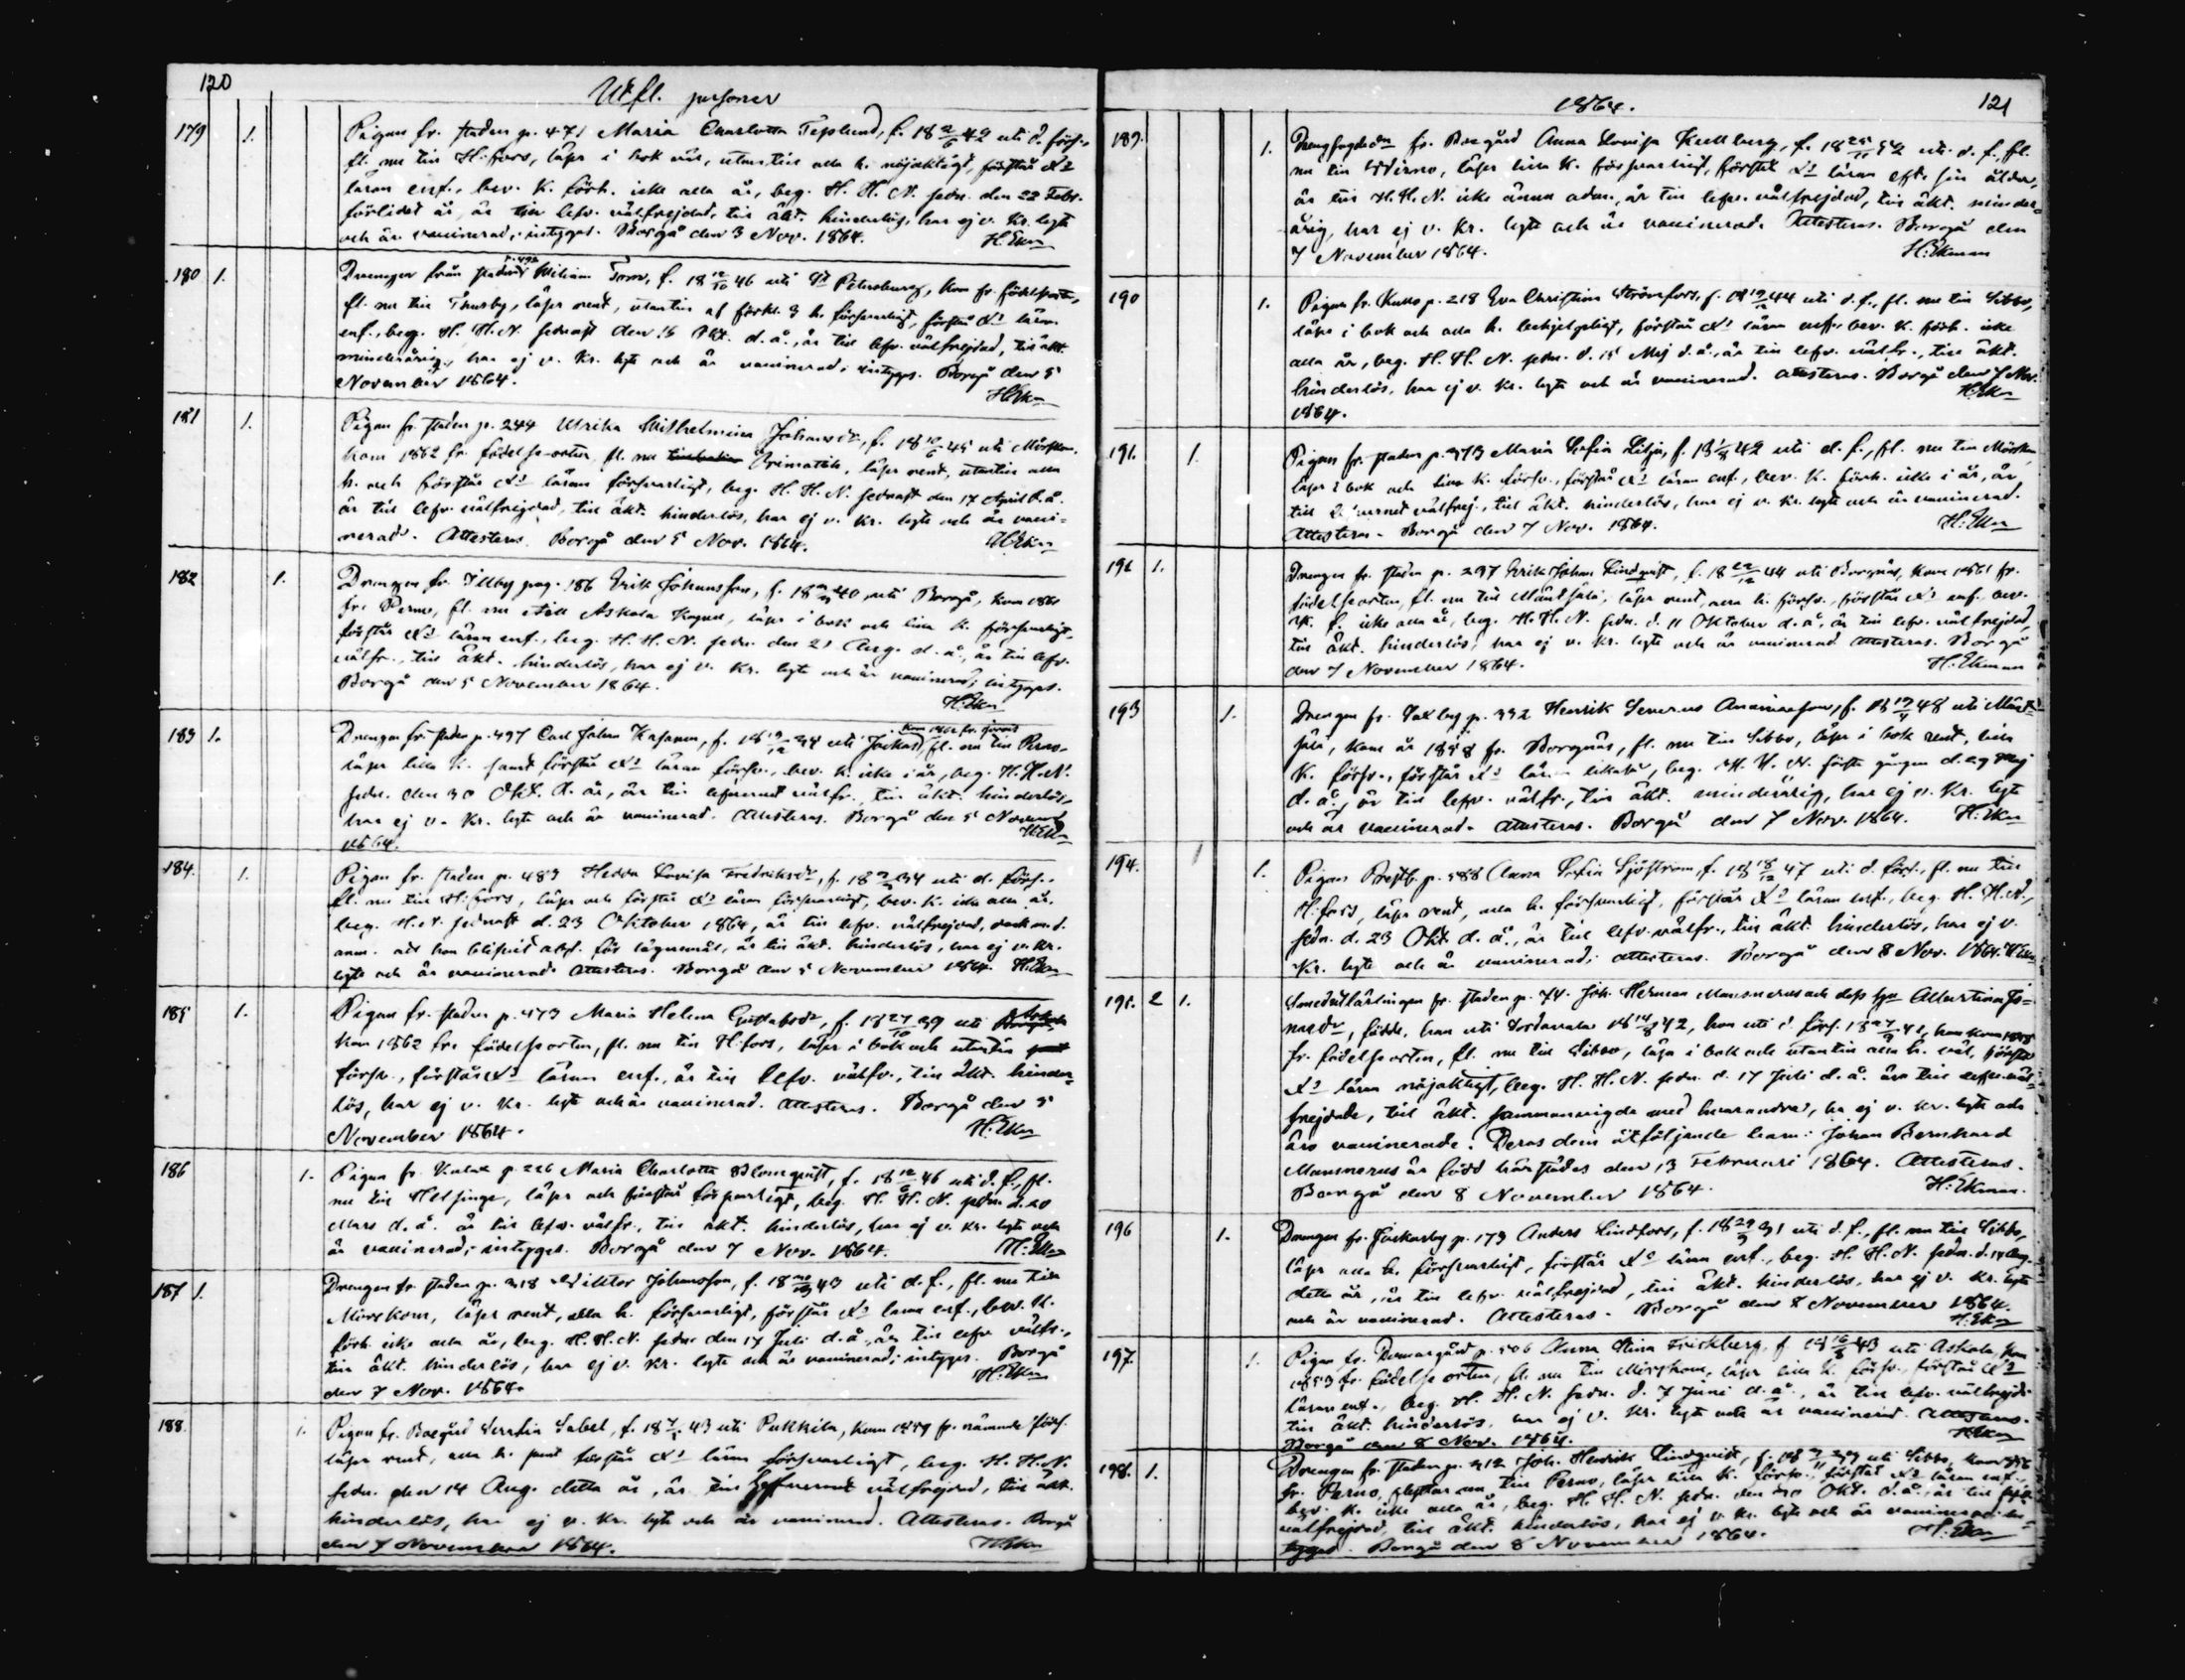 120
Utfl. personer
179 1. Pigan fr. staden p. 471 Maria Charlotta Teplund, f. 18 2/6 42 uti d. förs.,
fl. nu till H:fors, läser i bok väl, utantill alla k. nöjaktigt, förstår Xd
läran enf., bev. k. förh. icke alla år, beg. H. H. N. sedn. den 22 Febr.
förlidet år, är till lefv. välfrejdad, till äkt. hinderlös, har ej v. Kr. lyte
och är vaccinerad; intygas. Borgå den 3 Nov. 1864. H. Ekm
180 1. Drengen från staden p. 492 Wiliam Torov, f. 18 12/10 46 uti St Petersburg, kom fr. födelseorten,
fl. nu till Thusby, läser rent, utantill af förkl. 3 k. försvarligt, förstår Xd läran
enf., beg. H. H. N. sednast den 16 Okt. d. å., är till lefv. välfrejdad, till äkt.
minderårig, har ej v. Kr. lyte och är vaccinerad; intygas. Borgå den 5
November 1864. H. Ekm
181 1. Pigan fr. staden p. 244 Ulrika Wilhelmina Johansdr, f. 18 10/6 45 uti Mörskom,
kom 1862 fr. födelseorten, fl. nu till Orimattila, läser rent, utantill alla
k. och förstår Xd läran försvarligt, beg. H. H. N. sednast den 17 April d. å.
är till lefv. välfrejdad, till äkt. hinderlös, har ej v. Kr. lyte och är vacci=
nerad. Attesteras. Borgå den 5 Nov. 1864. H. Ekm
182 1. Drengen fr. Illby pag. 186 Erik Johansson, f. 18 40 uti Borgå, kom 1861
fr. Perno, fl. nu till Askola Kapell, läser i bok och lilla k. försvarligt,
förstår Xd läran enf., beg. H. H. N. sedn. den 21 Aug. d. å., är till lefv.
välfr., till äkt. hinderlös, har ej v. Kr. lyte och är vaccinerad; intygas.
Borgå den 5 November 1864. H. Ekm
183 1. Drengen fr. staden p. 497 Carl Johan Kasanen, f. 18 19/12 34 uti Jockas, fl. nu till Perno,
läser lilla k. samt förstår Xd läran försv., bev. k. icke i år, beg. H. H. N.
sedn. den 30 Okt. d. år, är till lefvernet välfr., till äkt. hinderlös,
har ej v. Kr. lyte och är vaccinerad. Attesteras. Borgå den 5 November
1864. H. Ekm
184. 1. Pigan fr. staden p. 483 Hedda Lovisa Fredriksdr, f. 18 34 uti d. förs.,
fl. nu till H:fors, läser och förstår Xd läran försvarligt, bev. k. icke alla år,
beg. H. N. sednast d. 23 Oktober 1864, är till lefv. välfrejdad,
anm. att hon blifvit absf. för lägersmål, är till äkt. hinderlös, har ej v. Kr.
lyte och är vaccinerad. Attesteras. Borgå den 5 November 1864. H. Ekm
185 1. Pigan fr. staden p. 473 Maria Helena Gustafsdr, f. 18 27/10 39 uti Askola
kom 1862 fr. födelseorten, fl. nu till H:fors, läser i bok och utantill
försv., förstår Xd läran enf., är till lefv. välfr., till äkt. hinder=
lös, har ej v. Kr. lyte och är vaccinerad. Attesteras. Borgå den 5
November 1864. H. Ekm
186 1. Pigan fr. p. 226 Maria Charlotta Blomqvist, f. 18 12/6 46 uti d. f., fl.
nu till Helsinge, läser och förstår försvarligt, beg. H. H. N. sedn. d. 20
Mars d. å. är till lefv. välfr., till äkt. hinderlös, har ej v. Kr. lyte och
är vaccinerad; intygas. Borgå den 7 Nov. 1864. H. Ekm
187 1. Drengen fr. staden p. 318 Wiktor Johansson, f. 18 43 uti d. f., fl. nu till
Mörskom, läser rent, alla k. försvarligt, förstår Xd läran enf., bev. k.
förh. icke alla år, beg. H. H. N. sedn. den 17 Juli d. å., är till lefv. välfr.,
till äkt. hinderlös, har ej v. Kr. lyte och är vaccinerad; intygas. Borgå
den 7 Nov. 1864. H. Ekm
188. 1. Pigan fr. Boegård Serafia Sabel, f. 18 43 uti Pukkila, kom 1859 fr. nämnde förs.
läser rent, alla k. samt förstår Xd läran försvarligt, beg. H. H. N.
sedn. den 14 Aug. detta år, är till lefvernet välfrejdad, till äkt.
hinderlös, har ej v. Kr. lyte och är vaccinerad. Attesteras. Borgå
den 7 November 1864. H. Ekm
1864. 121
189. 1. Drengfogdedn fr. Boegård Anna Lovisa Kullberg, f. 18 25/11 52 uti d. f., fl.
nu till Wirmo, läser lilla k. försvarligt, förstår Xd läran eft. sin ålder,
är till H. H. N. icke ännu adm., är till lefv. välfrejdad, till äkt. minder=
årig, har ej v. Kr. lyte och är vaccinerad. Attesteras. Borgå den
7 November 1864. H. Ekman
190 1. Pigan fr. Kullo p. 218 Eva Christina Strömfors, f. 18 19/12 44 uti d. f., fl. nu till Sibbo,
läser i bok och alla k. behjelpligt, förstår Xd läran enf., bev. k. förh. icke
alla år, beg. H. H. N. sedn. d. 15 Maj d. å., är till lefv. välfr., till äkt.
hinderlös, har ej v. Kr. lyte och är vaccinerad. Attesteras. Borgå den 7 Nov.
1864. H. Ekm
191. 1. Pigan fr. staden p. 373 Maria Sofia Lilja, f. 18 42 uti d. f., fl. nu till Mörskom,
läser i bok och lilla k. försv., förstår Xd läran enf., bev. k. förh. icke i år, är
till välfrej., till äkt. hinderlös, har ej v. Kr. lyte och är vaccinerad.
Attesteras. Borgå den 7 Nov. 1864. H. Ekm
192 1. Drengen fr. staden p. 297 Erik Johan Lindqvist, f. 18 22/12 44 uti Borgnäs, kom 1861 fr.
födelseorten, fl. nu till Mäntsälä, läser rent, alla k. försv., förstår Xd enf. bev.
k. f. icke alla år, beg. H. H. N. sedn. d. 11 Oktober d. å., är till lefv. välfrejdad,
till äkt. hinderlös, har ej v. Kr. lyte och är vaccinerad. Attesteras. Borgå
den 7 November 1864. H. Ekman
193 1. Drengen fr. Saxby p. 332 Henrik Severus Ananiasson, f. 18 19/4 48 uti Mänt=
sälä, kom år 1858 fr. Borgnäs, fl. nu till Sibbo, läser i bok rent, lilla
k. försv., förstår Xd läran, beg. H. H. N. första gången d. 29 Maj
d. å., är till lefv. välfr., till äkt. minderårig, har ej v. Kr. lyte
och är vaccinerad. Attesteras. Borgå den 7 Nov. 1864. H. Ekm
194. 1. Pigan Prestb. p. 588 Anna Sofia Sjöström, f. 18 18/12 47 uti d. förs., fl. nu till
H:fors, läser rent, alla k. försvarligt, förstår Xd läran enf., beg. H. H. N.,
sedn. d. 23 Okt d. å., är till lefv. välfr., till äkt. hinderlös, har ej v.
Kr. lyte och är vaccinerad; attesteras. Borgå den 8 Nov. 1864. H. Ekm
195. 2 1. Smedslärlingen fr. staden p. 74. Joh. Herman Mansnerus och dess hu Albertina Jo=
nasdr, födde, han uti Sordavala 18 14/8 42, hon uti d. förs. 18 27/9 41, han kom 1858
fr. födelseorten, fl. nu till Sibbo, läsa i bok och utantill alla k. väl, förstå
Xd läran nöjaktigt, beg. H. H. N. sedn. d. 17 Juli d. å. äro till lefv. väl=
frejdade, till äkt. sammanvigda med hvarandra, ha ej v. Kr. lyte och
äro vaccinerade. Deras dem åtföljande barn: Johan Bernhard
Mansnerus är född härstädes den 13 Februari 1864. Attesteras.
Borgå den 8 November 1864. H. Ekman.
196 1. Drengen fr. Jackarby p. 173 Anders Lindfors, f. 18 29/9 31 uti d. f., fl. nu till Sibbo,
läser alla k. försvarligt, förstår Xd läran enf., beg. H. H. N. sedn. d. 14 Aug.
detta år, är till lefv. välfrejdad, till äkt. hinderlös, har ej v. Kr. lyte
och är vaccinerad. Attesteras. Borgå den 8 November 1864.
H. Ekm
197. 1. Pigan fr. Domargård p. 506 Anna Stina Frickberg, f. 18 16/8 43 uti Askola, kom
1853 fr. födelseorten, fl. nu till Mörskom, läser lilla k. försv., förstår Xd
läran enf., beg. H. H. N. sedn. d. 7 Juni d. å., är till lefv. välfrejd.
till äkt. hinderlös, har ej v. Kr. lyte och är vaccinerad. Attesteras.
Borgå den 8 Nov. 1864. H. Ekm
198. 1. Drengen fr. staden p. 312 Joh. Henrik Lindqvist, f. 18 39 uti Sibbo, kom
fr. Perno, flyttar nu till Perno, läser lilla k. försv., förstår Xd läran enf.,
bev. k. icke alla år, beg. H. H. N. sedn. den 30 Okt. d. å., är till
välfrejdad, till äkt. hinderlös, har ej v. Kr. lyte och är vaccinerad; in=
tygas. Borgå den 8 November 1864. H. Ekm